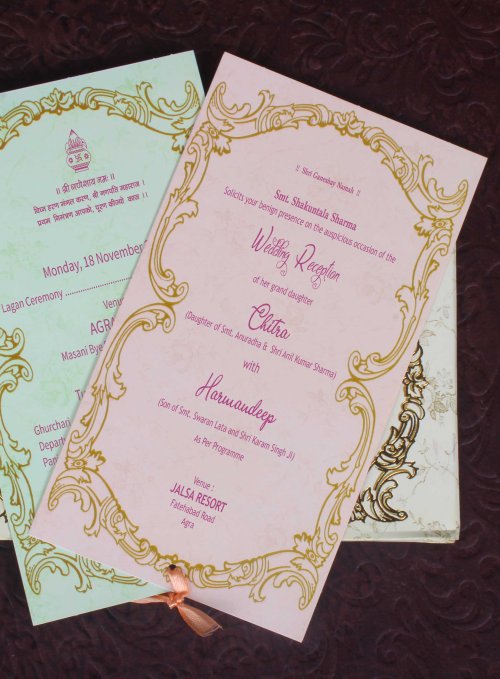 ॥ श्री गणेशाय नमः ॥
विघ्न हरण मंगल करण, श्री गणपति महाराज।
प्रथम निमंत्रण आपको, पूरण कीज्यो काज॥
Monday, 18 November
Lagan Ceremony
Venu
AGRA
Masani Bye
Ghurchari
Depart
!! Shri Ganeshay Namah !!
Smt. Shakuntala Sharma
Solicits your benign presence on the auspicious occasion of the
Wedding Reception
of her grand daughter
Chitra
(Daughter of Smt. Anuradha & Shri Anil Kumar Sharma)
with
Harmandeep
(Son of Smt. Swaran Lata and Shri Karam Singh Ji)
As Per Programme
Venue :
JALSA RESORT
Fatehabad Road
Agra